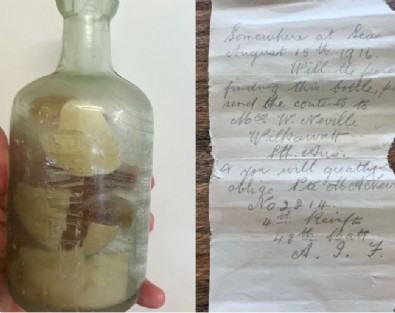 Somewhere at Sea
August 15th 1916.
Will the
finding this bottle,
send the contents to
W. Neville
Wilkawatt
Sth. Aus.
& you will greatly
oblige Pte
No 2214.
4th Reinfts
48th Batt
A. I. F.